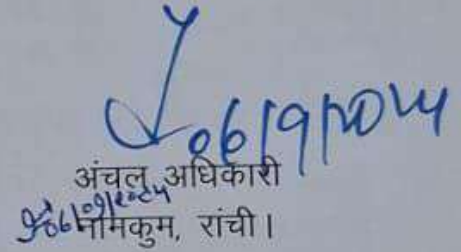 06/9/2024
अंचल अधिकारी
06/09/2024
नामकुम, रांची।